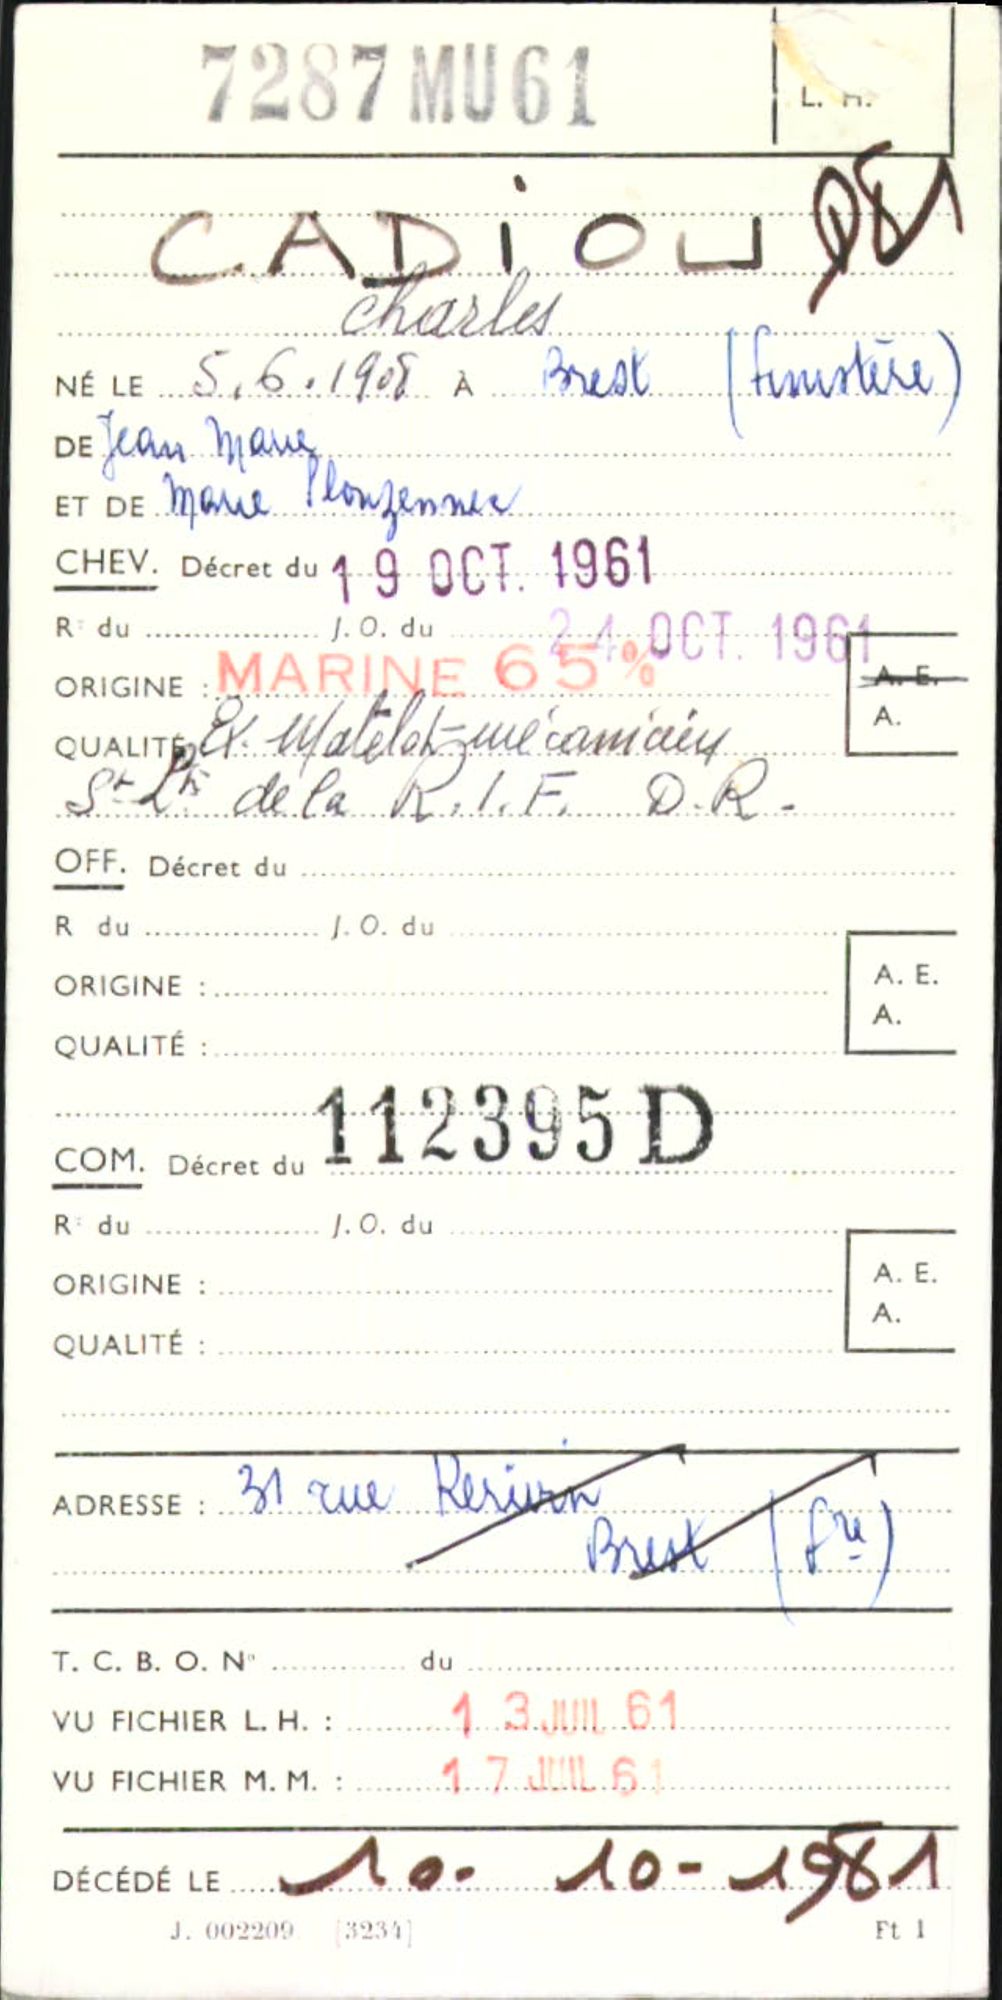 7287 MU 61
L. H.
CADiOU 981
Charles
NÉ LE 5.6.1908 À Brest (Finistère)
DE Jean Marie
ET DE Marie Plouzennec
CHEV. Décret du 19 OCT. 1961
R: du J. O. du 24 OCT. 1961
ORIGINE : MARINE 65%
A. E.
A.
QUALITÉ Ex Matelot-mécanicien
St Lt de la R.I.F. D.R.
OFF. Décret du
R du J. O. du
ORIGINE :
A. E.
A.
QUALITÉ :
112395 D
COM. Décret du
R: du J. O. du
ORIGINE :
A. E.
A.
QUALITÉ :
ADRESSE : 31 rue
Brest (Fre)
T. C. B. O. N° du
VU FICHIER L. H. : 13 JUIL 61
VU FICHIER M. M. : 17 JUIL 61
DÉCÉDÉ LE 10-10-1981
J. 002209 [3234] Ft 1